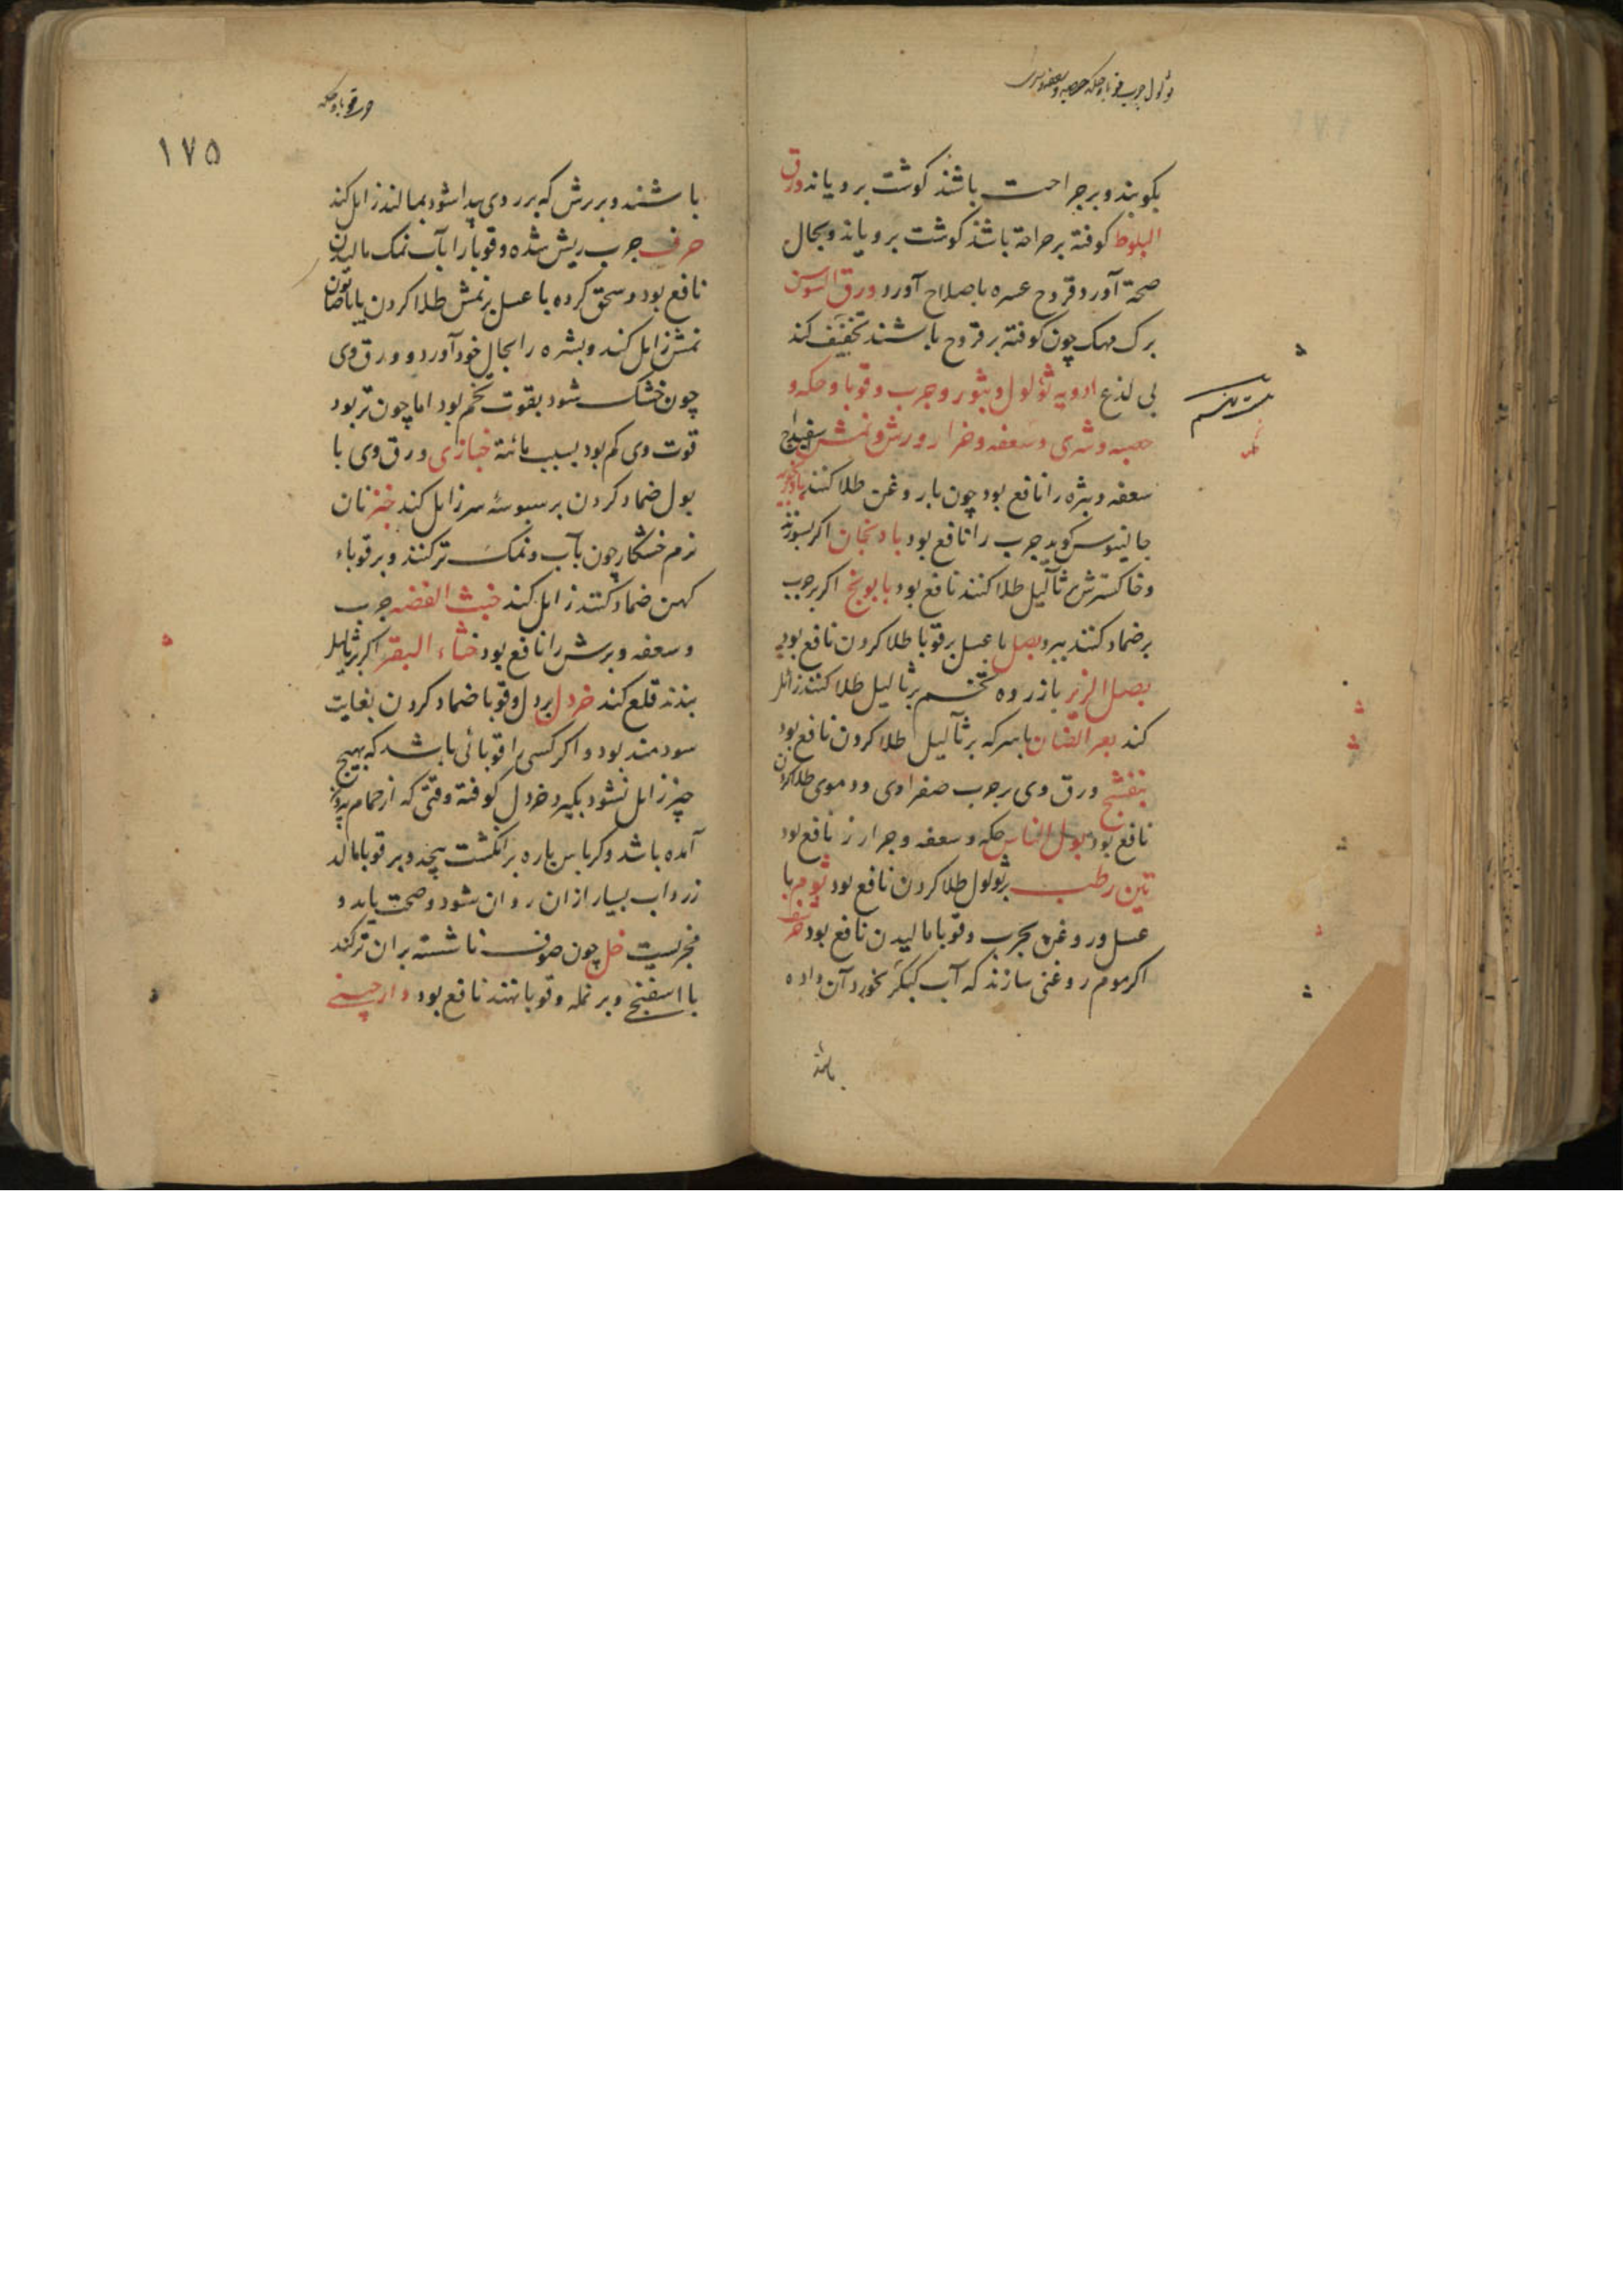 ثولول جرب قوبا وحکه حصبه وسعفه وبرش
بکوبند و بر جراحت باشند کوشت برویاند ورق
البلوط کوفته بر جراحة باشند کوشت برویاند و بحال
صحة آورد و قروح عسره باصلاح آورد ورق السوسن
برک مهک چون کوفته بر قروح باشند تخفیف کند
بی لذع ادویه ثولول و بثور و جرب و قوبا و حکه و
حصبه و شری و سعفه و خزاز و برش و نمش سفیداج
سعفه و بثره را نافع بود چون با روغن طلا کنند
جالینوس کوید جرب را نافع بود بادنجان اکر بسوزند
و خاکسترش بر ثآلیل طلا کنند نافع بود بابونج اکر بر جرب
بر ضماد کنند ببرد بصل با عسل بر قوبا طلا کردن نافع بود
بصل الزیر با زرده تخم بر ثآلیل طلا کنند زائل
کند بعر الضان با سرکه بر ثآلیل طلا کردن نافع بود
بنفشج ورق وی بر جرب صفراوی و دموی طلا کردن
نافع بود بول الناس حکه و سعفه و جرب را نافع بود
تین رطب بر ثولول طلا کردن نافع بود ثوم با
عسل و روغن بجرب و قوبا مالیدن نافع بود
اکر موم روغنی سازند که آب کبکر بخورد آن داده
باشند
جرب قوبا وحکه
۱۷۵
باشند و بر برش که بر روی پیدا شود بمالند زایل کند
حرف جرب ریش شده و قوبا را بآب نمک مالیدن
نافع بود و سحق کرده با عسل بر نمش طلا کردن یا با صابون
نمش زایل کند و بشره را بحال خود آورد و ورق وی
چون خشک شود بقوت تخم بود اما چون تر بود
قوت وی کم بود بسبب مائیة خبازی ورق وی با
بول ضماد کردن بر سبوسهٔ سر زایل کند خبز نان
نرم خشکار چون بآب و نمک تر کنند و بر قوباء
کهن ضماد کنند زایل کند خبث الفضه جرب
و سعفه و برش را نافع بود خثاء البقر اکر بر ثآلیل
بندند قلع کند خردل بر ثولول و قوبا ضماد کردن بغایت
سودمند بود و اکر کسی را قوبائی باشد که بهیچ
چیز زایل نشود بکیرد خردل کوفته وقتی که از حمام بیرون
آمده باشد و کرباس پاره بر انکشت پیچد و بر قوبا مالد
زرداب بسیار از ان روان شود و صحت یابد و
مجربست خل چون صوف ناشسته بران تر کند
یا اسفنج و بر نمله و قوبا نهند نافع بود دارچینی